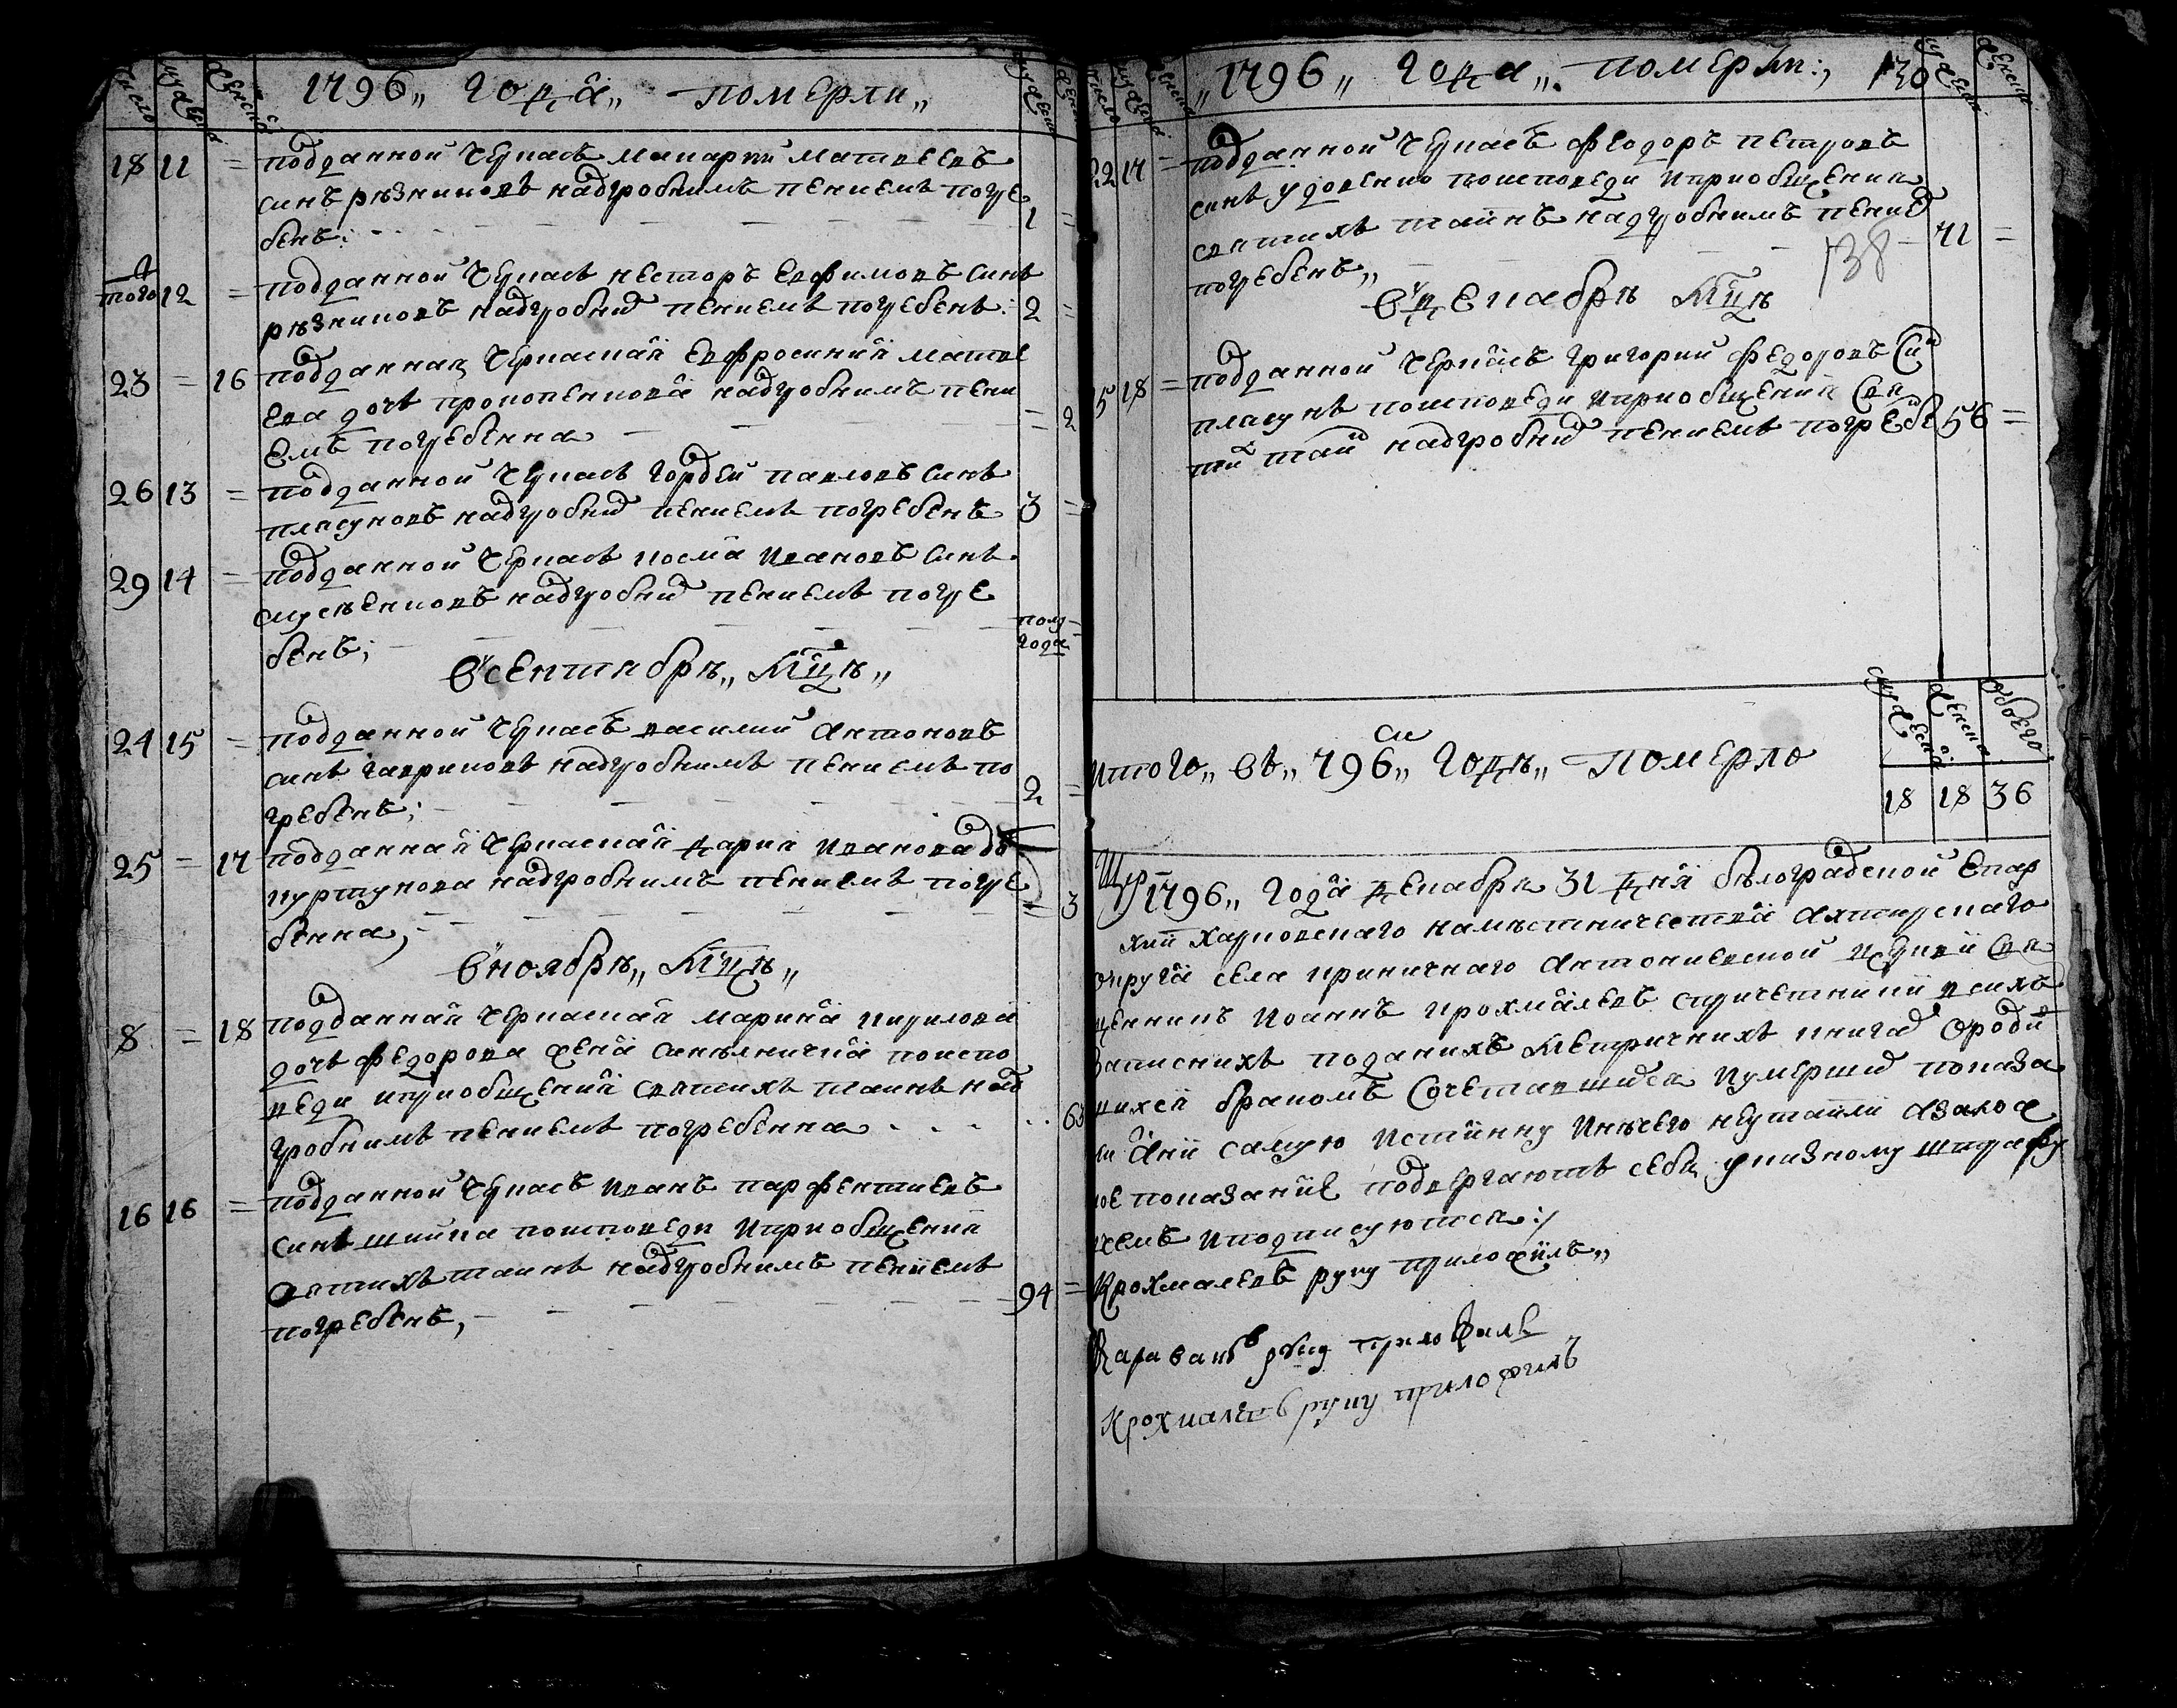 число мужеска женска 1796„ года„ померли„ мужеска женска
18 11 = подданной Черкасъ Макарий Матвеевъ
синъ резниковъ надгробнимъ пениемъ погре 1 =
бенъ:
того 12 = подданной Черкасъ Несторъ Евфимовъ синъ
резниковъ надгробним пениемъ погребенъ: 2 =
23 = 16 подданная Черкаская Евфросиния Матве
ева дочь прокопенкова надгробнимъ пени = 2
емъ погребенна
26 13 = подданной Черкасъ Гордей Павловъ синъ
пласуновъ надгробним пениемъ погребенъ 3 =
29 14 = подданной Черкасъ Косма Ивановъ синъ
надгробним пениемъ погре полу =
бенъ; года
В сентябрѣ„ мцѣ„
24 15 = подданной Черкасъ Василий Антоновъ
синъ гавриковъ надгробнимъ пениемъ по 2 =
гребенъ;
25 = 17 подданная Черкаская Дария Иванова до
куртукова надгробнимъ пениемъ погре = 3
бенна,
В ноябрѣ„ мцѣ„
8 = 18 подданная Черкаская Марина Кирилова
дочь Федорова жена синелничка по испо
веди и приобщения святихъ таинъ над
гробнимъ пениемъ погребенна . . . . . 63
16 16 = подданной Черкасъ Иванъ Парфентиевъ
синъ шийка по исповеди и приобщений
святихъ таинъ надгробнимъ пениемъ 94 =
погребенъ,
число мужеска женска „1796„ года„ померли:, 130 мужеска женска
22 17 = подданной Черкасъ Феодоръ Петровъ
синъ удовенко по исповеди и приобщения
святихъ таинъ надгробнимъ пение 71 =
погребенъ„ 138
В декабрѣ мцѣ
5 18 = подданной Черкасъ Григорий Федоровъ син
пласунъ по исповеди и приобщений свя
ти таи надгробним пениемъ погребе 56 =
мужеска женска обоего
Итого„ въ„ 796м„ годѣ„ померло 18 18 36
1796„ года декабря 31 дня белоградской епар
хии харковскаго наместничества ахтирскаго
округа села криничнаго антониевской церкви свя
щенникъ Иоаннъ Крохмалевъ с причетники в сихъ
записнихъ поданихъ метричнихъ книгах о роди
вшихся бракомъ сочетавшихся и умерших показа
ли самую истинну и ничего не утаили а за лож
ное показание подвергаютъ себя указному штрафу
в чемъ и подписуются:/
Крохмалевъ руку приложилъ„
руку приложилъ
Крохмалевъ руку приложилъ